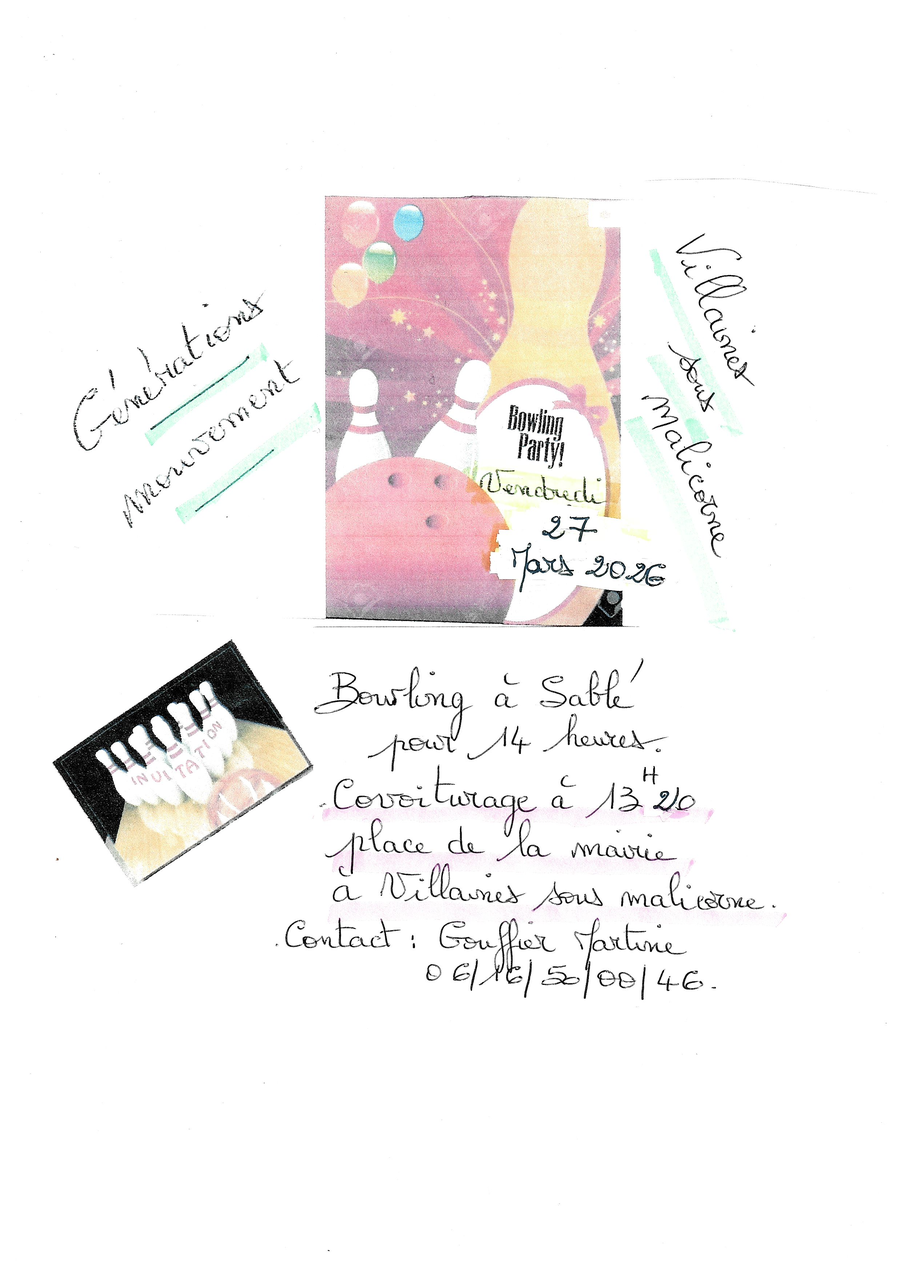 Générations
mouvement
Villaines
sous
malicorne
Bowling
Party!
Vendredi
27
Mars 2026
INVITATION
Bowling à Sablé
pour 14 heures.
.Covoiturage à 13H20
place de la mairie
à Villaines sous malicorne.
.Contact : Gouffier Martine
06/16/50/00/46.